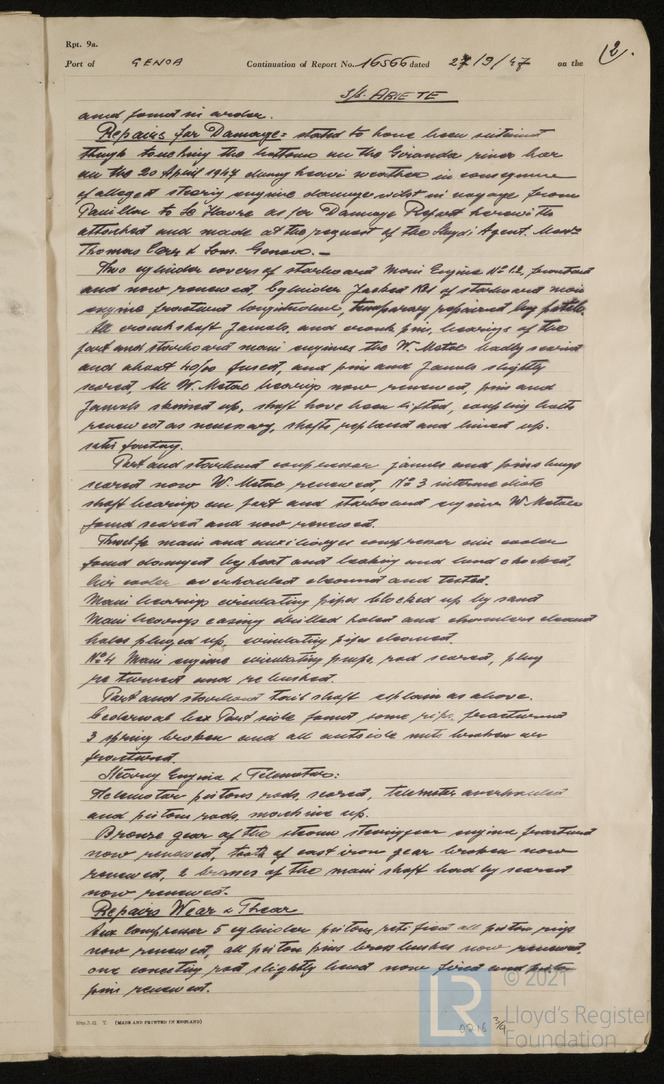 Rpt. 9a.
(2).
Port of GENOA Continuation of Report No. 16566 dated 27/9/47 on the
S/S. ARIETE
and found in order.
Repairs for Damage = stated to have been sustained
though touching the bottom on the Gironda river bar
on the 20 April 1947 during heavy weather in consequence
of alleged steering engine damage whilst in voyage from
Pauillac to Le Havre as for Damage Report herewith
attached and made at the request of the Lloyd's Agent. Messrs
Thomas Carr & Sons. Genova. —
Two cylinder covers of starboard Main Engine No 1.2, fractured
and now renewed, Cylinder Jacket No1 of starboard main
engine fractured longitudinal, temporary repaired by patch.
All crankshaft Jurnals, and crank pin, bearings of the
port and starboard main engines the W. Metal badly scored
and about 40/00 fused, and pins and Jurnals slightly
scored, All W. Metal bearings now renewed, pins and
Jurnals skimed up, shaft have been lifted, coupling bolts
renewed as necessary, shafts replaced and lined up.
satisfactory.
Port and starboard compressor jurnals and pins bearings
scored now W. Metal renewed, No 3 intermediate
shaft bearings on port and starboard engines W. Metals
found scored and now renewed.
Twelfe main and auxiliaryes compressor air cooler
found damaged by heat and leaking and and chocked,
Air cooler overhauled cleaned and tested.
Main bearings circulating pipes blocked up by sand
Main bearings casing drilled holed and chambers cleaned
holes pluged up, circulating pipes cleaned.
No 4 Main engine circulating pump, rod scored, plug
returned and rebushed.
Port and starboard tail shaft explain as above.
box Port side found some rips. fractured
3 spring broken and all outside nuts broken or
fractured.
Steering Engine & Telemotor:
Telemotor pistons rods, scored, telemotor overhauled
and pistons rods, machine up.
Bronze gear of the steam steering gear engine fractured
now renewed, tooth of cast iron gear broken now
renewed, 2 brasses of the main shaft badly scored
now renewed.
Repairs Wear & Thear
Aux Compressor 5 cylinder pistons, rectified all piston rings
now renewed, all piston pins brass bushes now renewed,
one connecting rod slightly bend now fired and piston
pins renewed.
(MADE AND PRINTED IN ENGLAND)
© 2021
LR
Lloyd's Register
Foundation